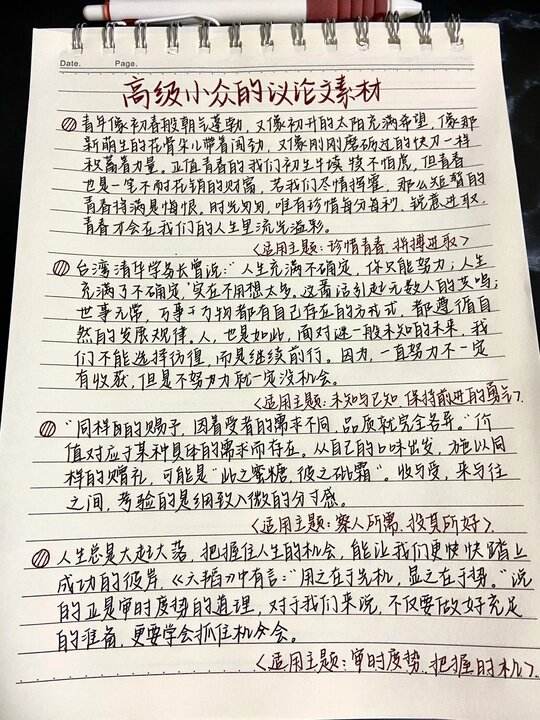 Date. Page.
高级小众的议论文素材
青年像初春般朝气蓬勃，又像初升的太阳充满希望，像那
新萌生的花骨朵儿带着闯劲，又像刚刚磨砺过的快刀一样
积蓄着力量。正值青春的我们初生牛犊不怕虎，但青春
也是一笔不耐花销的财富，若我们尽情挥霍，那么短暂的
青春将满是悔恨。时光匆匆，唯有珍惜每分每秒，锐意进取，
青春才会在我们的人生里流光溢彩。
<适用主题：珍惜青春 拼搏进取>
台湾清华学与长曾说："人生充满不确定，你只能努力；人生
充满了不确定，实在不用想太多。这番话引起无数人的共鸣；
世事无常，万事千万物都有自己存在的方式，都遵循自
然的发展规律。人，也是如此，面对谜一般未知的未来，我
们不能选择彷徨，而是继续前行。因为，一直努力不一定
有收获，但是不努力就一定没机会。
<适用主题：未知与已知 保持前进的勇气>
"同样的赐予，因着受者的需求不同，品质就完全各异。"价
值对应于某种具体的需求而存在。从自己的口味出发，施以同
样的赠礼，可能是"此之蜜糖，彼之砒霜"。收与受，来与往
之间，考验的是细致入微的分寸感。
<适用主题：察人所需，投其所好>
人生总是大起大落，把握住人生的机会，能让我们更快快踏上
成功的彼岸，《六韬》中有言："用之在于机，显之在于势。"说
的正是审时度势的道理，对于我们来说，不仅要做好充足
的准备，更要学会抓住机会。
<适用主题：审时度势，把握时机>